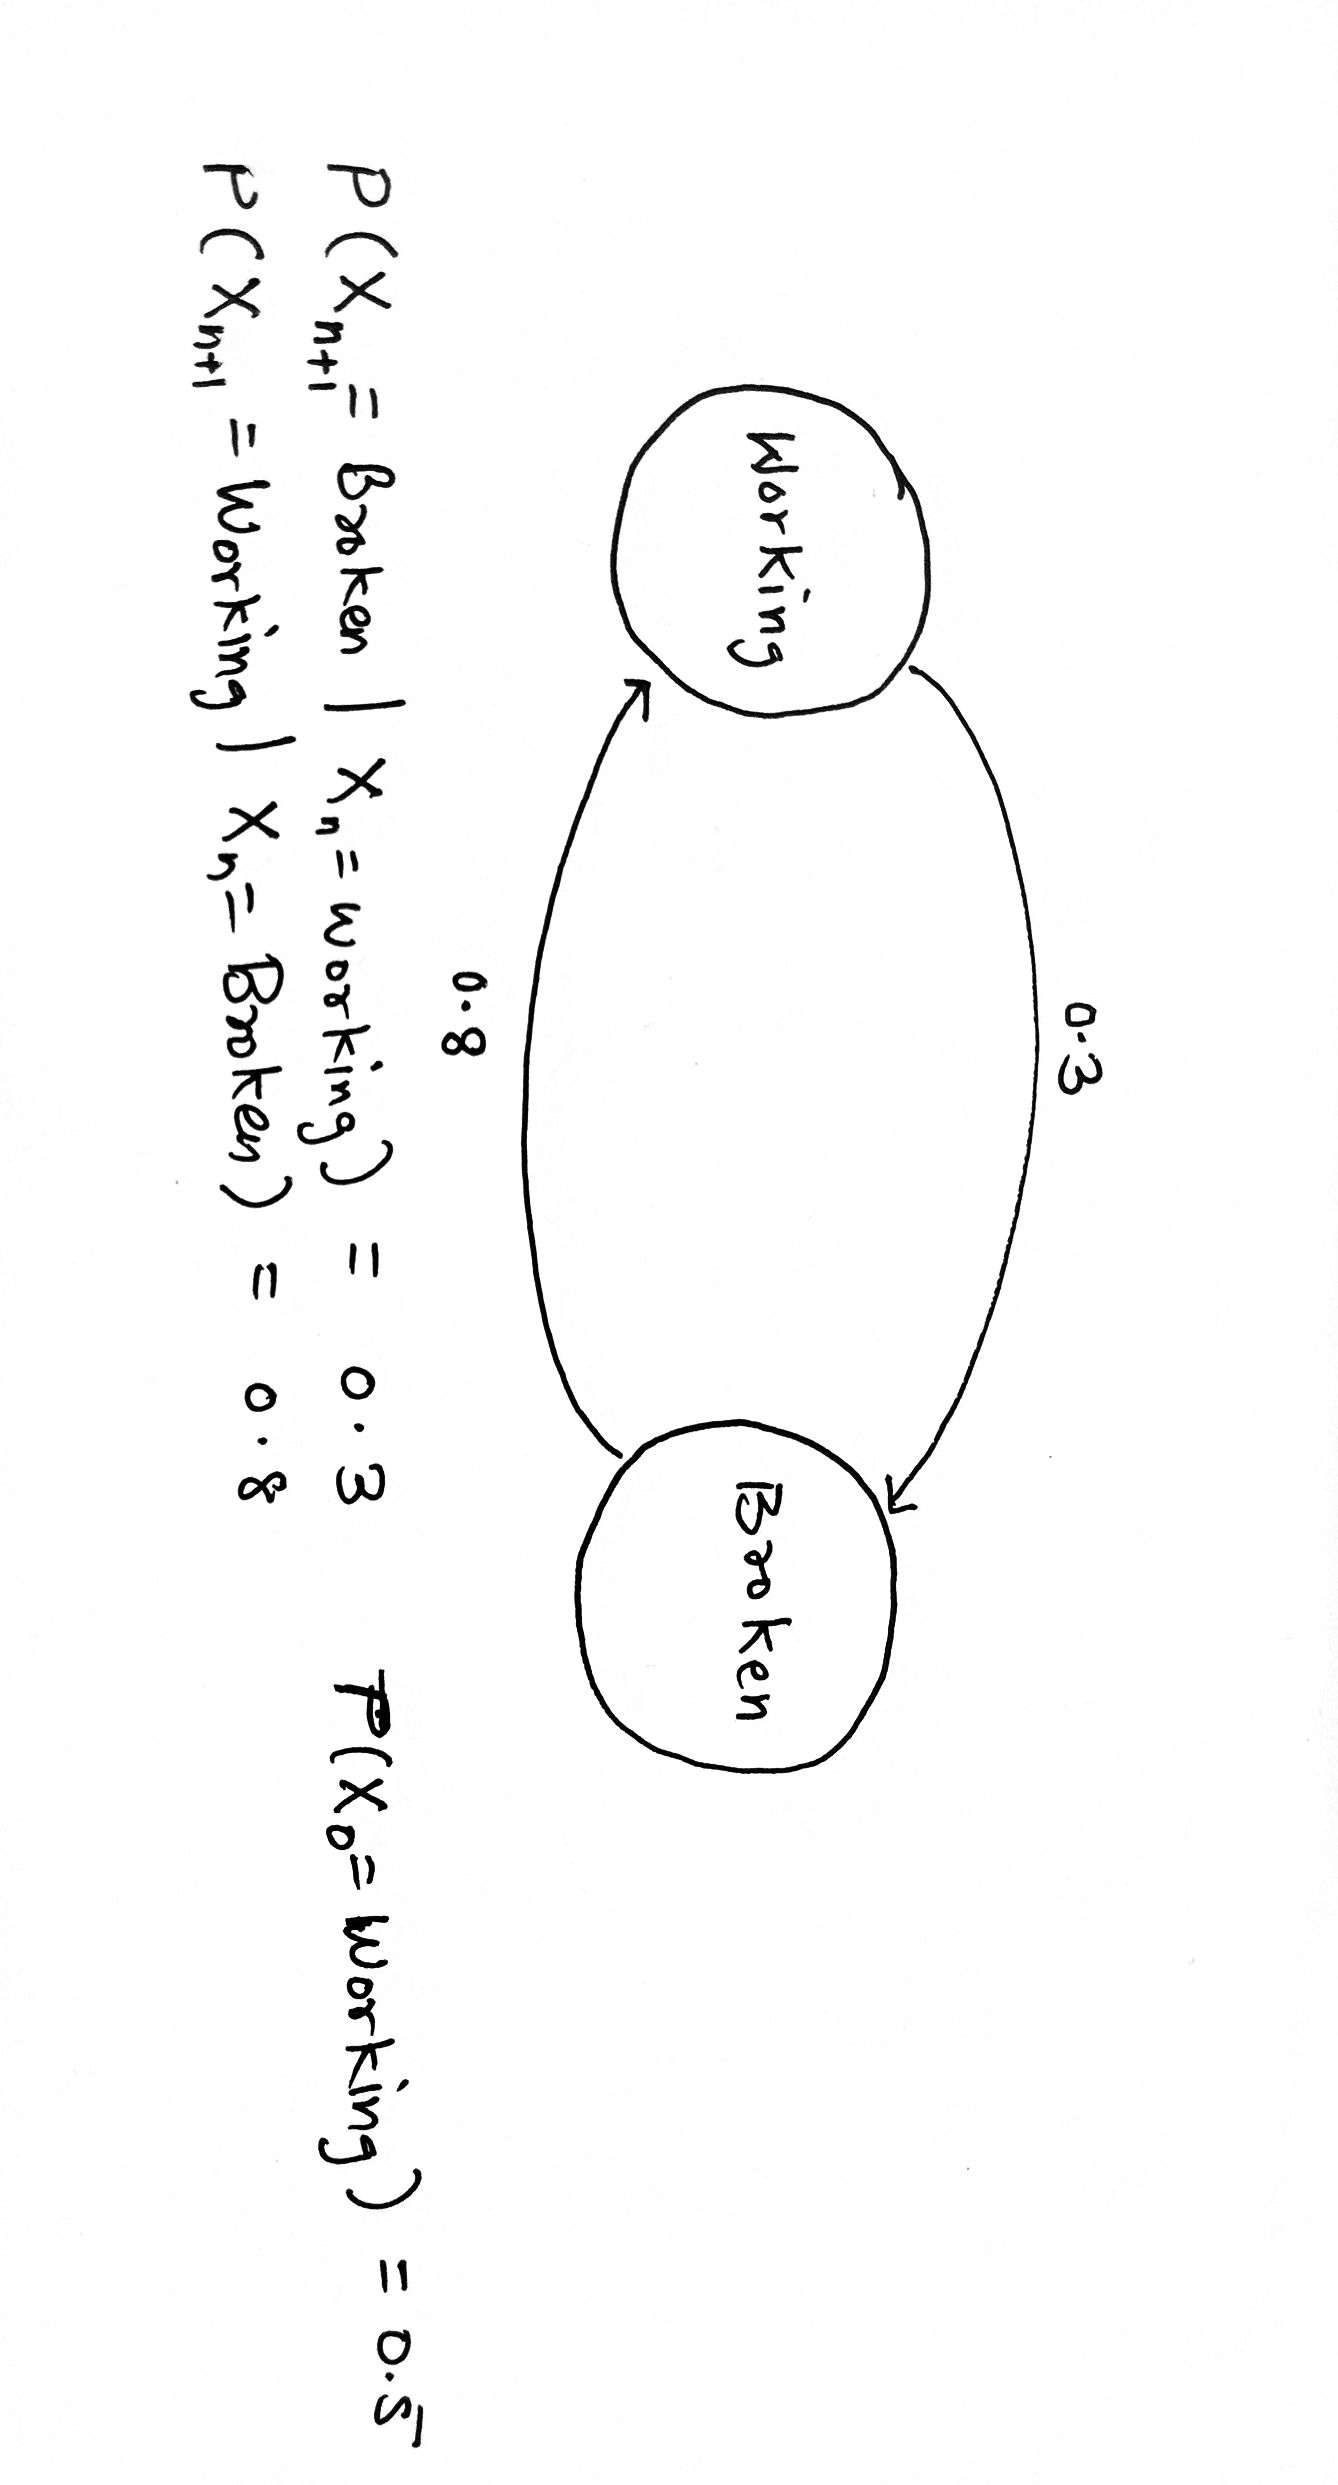 0.3
Working
Broken
0.8
P(Xn+1 = Broken | Xn = working) = 0.3
P(X0 = Working) = 0.5
P(Xn+1 = Working | Xn = Broken) = 0.8